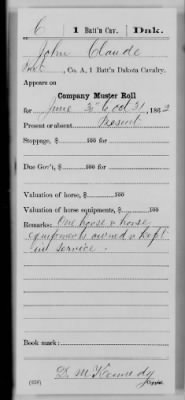 C | 1 Batt'n Cav. | Dak.
John Claude
Pvt, Co. A, 1 Batt'n Dakota Cavalry.
Appears on
Company Muster Roll
for June 30 to Oct 31, 1863
Present or absent Present
Stoppage, $ 100 for
Due Gov't, $ 100 for
Valuation of horse, $ 100
Valuation of horse equipments, $ 100
Remarks: One horse & horse
equipments owned & kept
in service.
Book mark:
D. M. Kennedy
(858) Copyist.